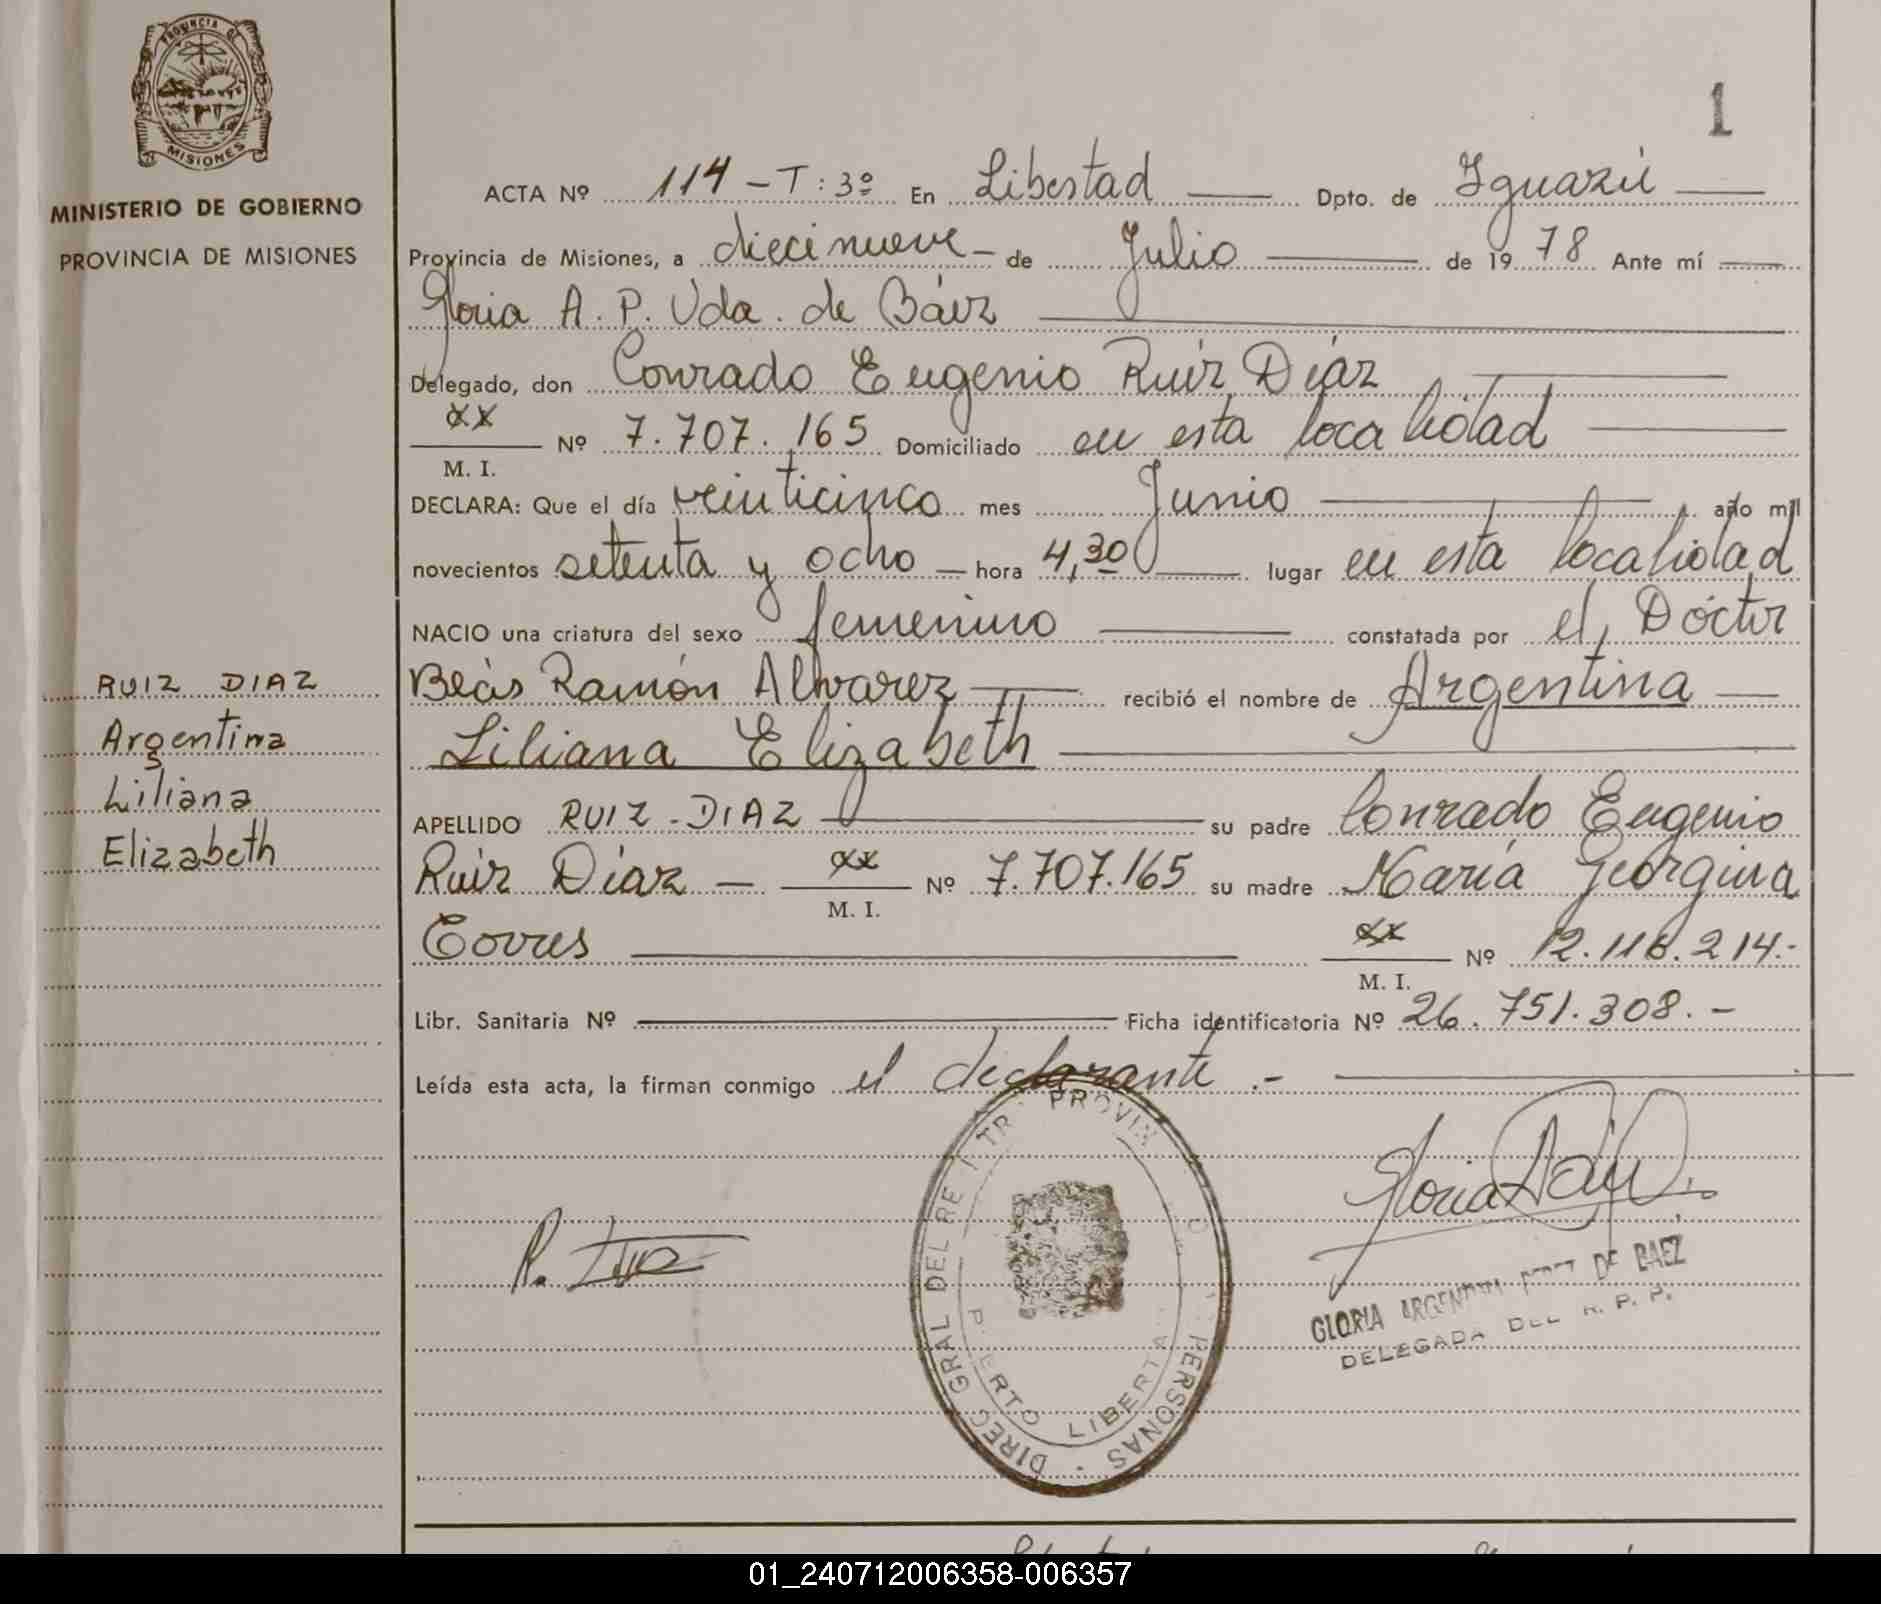 PROVINCIA DE
MISIONES
MINISTERIO DE GOBIERNO
PROVINCIA DE MISIONES
RUIZ DIAZ
Argentina
Liliana
Elizabeth
1
ACTA Nº 114 - T: 3º En Libertad Dpto. de Iguazú
Provincia de Misiones, a diecinueve - de Julio de 1978 Ante mí
Gloria A. P. Vda. de Báez
Delegado, don Conrado Eugenio Ruiz Díaz
xx
Nº 7.707.165 Domiciliado en esta localidad
M. I.
DECLARA: Que el día veinticinco mes Junio año mil
novecientos setenta y ocho - hora 4,30 lugar en esta localidad
NACIO una criatura del sexo femenino constatada por el Dóctor
Blás Ramón Alvarez recibió el nombre de Argentina
Liliana Elizabeth
APELLIDO RUIZ - DIAZ su padre Conrado Eugenio
Ruiz Díaz - xx Nº 7.707.165 su madre María Georgina
M. I.
Torres xx Nº 12.118.214.-
M. I.
Libr. Sanitaria Nº Ficha identificatoria Nº 26.751.308.-
Leída esta acta, la firman conmigo el declarante .-
DIREC GRAL DEL RE I TR PROVIN PERSONAS
P ERTO LIBERTA
GLORIA ARGENTINA PEREZ DE BAEZ
DELEGADA DEL R. P. P.
01_240712006358-006357